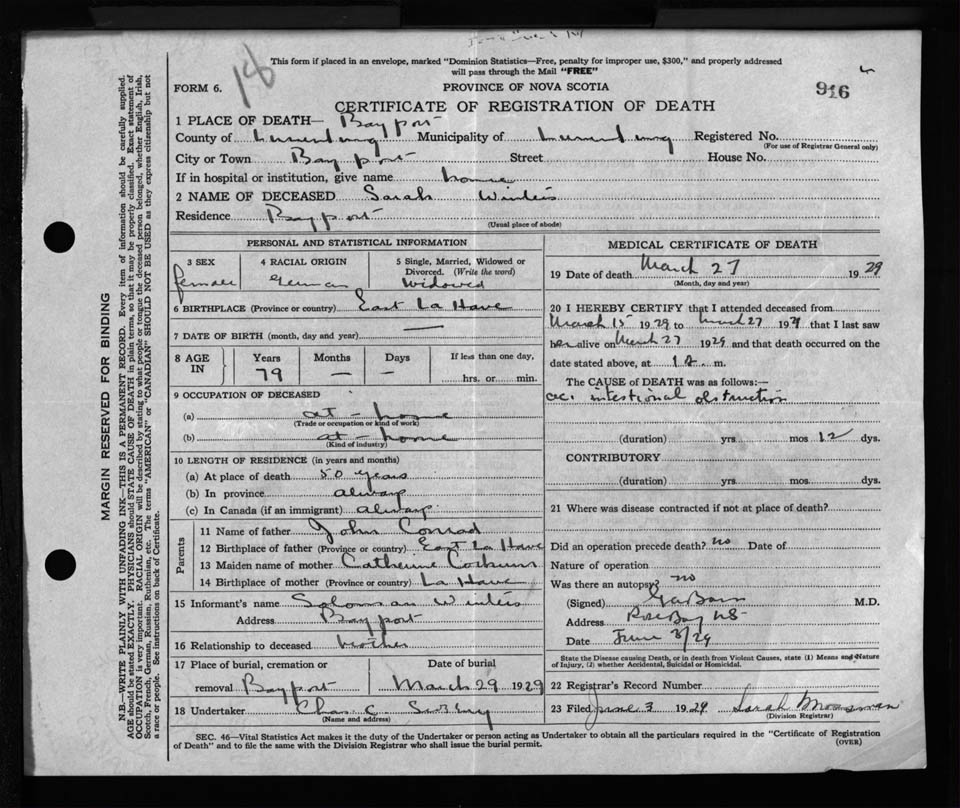 This form if placed in an envelope, marked "Dominion Statistics—Free, penalty for improper use, $300," and properly addressed
will pass through the Mail "FREE"
FORM 6.
PROVINCE OF NOVA SCOTIA
916
CERTIFICATE OF REGISTRATION OF DEATH
1 PLACE OF DEATH— Bayport
County of Lunenburg Municipality of Lunenburg Registered No.
(For use of Registrar General only)
City or Town Bayport Street House No.
If in hospital or institution, give name home
2 NAME OF DECEASED Sarah Winters
Residence Bayport
(Usual place of abode)
PERSONAL AND STATISTICAL INFORMATION
3 SEX female
4 RACIAL ORIGIN German
5 Single, Married, Widowed or
Divorced. (Write the word)
Widowed
6 BIRTHPLACE (Province or country) East La Have
7 DATE OF BIRTH (month, day and year) —
8 AGE IN Years 79 Months — Days — If less than one day, hrs. or min.
9 OCCUPATION OF DECEASED
(a) at - home
(Trade or occupation or kind of work)
(b) at - home
(Kind of industry)
10 LENGTH OF RESIDENCE (in years and months)
(a) At place of death 50 years
(b) In province always
(c) In Canada (if an immigrant) always
Parents
11 Name of father John Conrad
12 Birthplace of father (Province or country) East La Have
13 Maiden name of mother Catherine
14 Birthplace of mother (Province or country) La Have
15 Informant's name Soloman Winters
Address Bayport
16 Relationship to deceased brother
17 Place of burial, cremation or
removal Bayport
Date of burial
March 29 1929
18 Undertaker Chas C.
(Name and address)
MEDICAL CERTIFICATE OF DEATH
19 Date of death March 27 1929
(Month, day and year)
20 I HEREBY CERTIFY that I attended deceased from
March 15 1929 to March 27 1929 that I last saw
her alive on March 27 1929 and that death occurred on the
date stated above, at 12 m.
The CAUSE of DEATH was as follows:—
ac. intestional obstruction
(duration) yrs. mos 12 dys.
CONTRIBUTORY
(duration) yrs. mos. dys.
21 Where was disease contracted if not at place of death?
Did an operation precede death? no Date of
Nature of operation
Was there an autopsy? no
(Signed) M.D.
Address Rose Bay NS
Date June 3/29
State the Disease causing Death, or in death from Violent Causes, state (1) Means and Nature
of Injury, (2) whether Accidental, Suicidal or Homicidal.
22 Registrar's Record Number
23 Filed June 3 1929 Sarah Mossman
(Division Registrar)
SEC. 46—Vital Statistics Act makes it the duty of the Undertaker or person acting as Undertaker to obtain all the particulars required in the "Certificate of Registration
of Death" and to file the same with the Division Registrar who shall issue the burial permit.
(OVER)
MARGIN RESERVED FOR BINDING
N.B.—WRITE PLAINLY WITH UNFADING INK—THIS IS A PERMANENT RECORD. Every item of information should be carefully supplied.
AGE should be stated EXACTLY. PHYSICIANS should STATE CAUSE OF DEATH in plain terms, so that it may be properly classified. Exact statement of
OCCUPATION is very important. RACIAL ORIGIN will be described by stating to what people or tongue the deceased person belonged, whether English, Irish,
Scotch, French, German, Russian, Ruthenian, etc. The terms "AMERICAN" or "CANADIAN" SHOULD NOT BE USED as they express citizenship but not
a race or people. See instructions on back of Certificate.